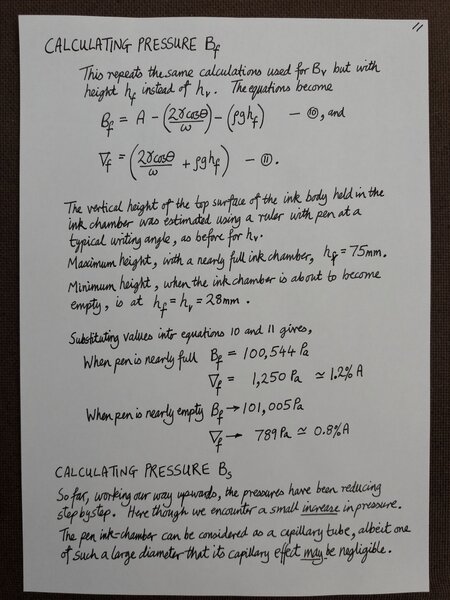 11
CALCULATING PRESSURE Bf
This repeats the same calculations used for Bv but with
height hf instead of hv. The equations become
Bf = A − (2γcosθ/ω) − (ρghf) — ⑩, and
∇f = (2γcosθ/ω + ρghf) — ⑪.
The vertical height of the top surface of the ink body held in the
ink chamber was estimated using a ruler with pen at a
typical writing angle, as before for hv.
Maximum height, with a nearly full ink chamber, hf = 75mm.
Minimum height, when the ink chamber is about to become
empty, is at hf = hv = 28mm.
Substituting values into equations 10 and 11 gives,
When pen is nearly full Bf = 100,544 Pa
∇f = 1,250 Pa ≃ 1.2% A
When pen is nearly empty Bf → 101,005 Pa
∇f → 789 Pa ≃ 0.8% A
CALCULATING PRESSURE Bs
So far, working our way upwards, the pressures have been reducing
step by step. Here though we encounter a small increase in pressure.
The pen ink-chamber can be considered as a capillary tube, albeit one
of such a large diameter that its capillary effect may be negligible.